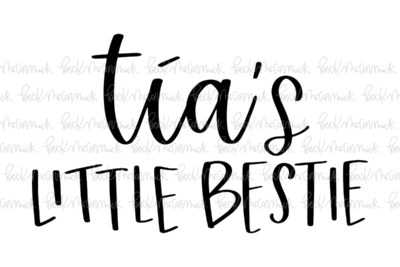 tía's
LITTLE BESTIE